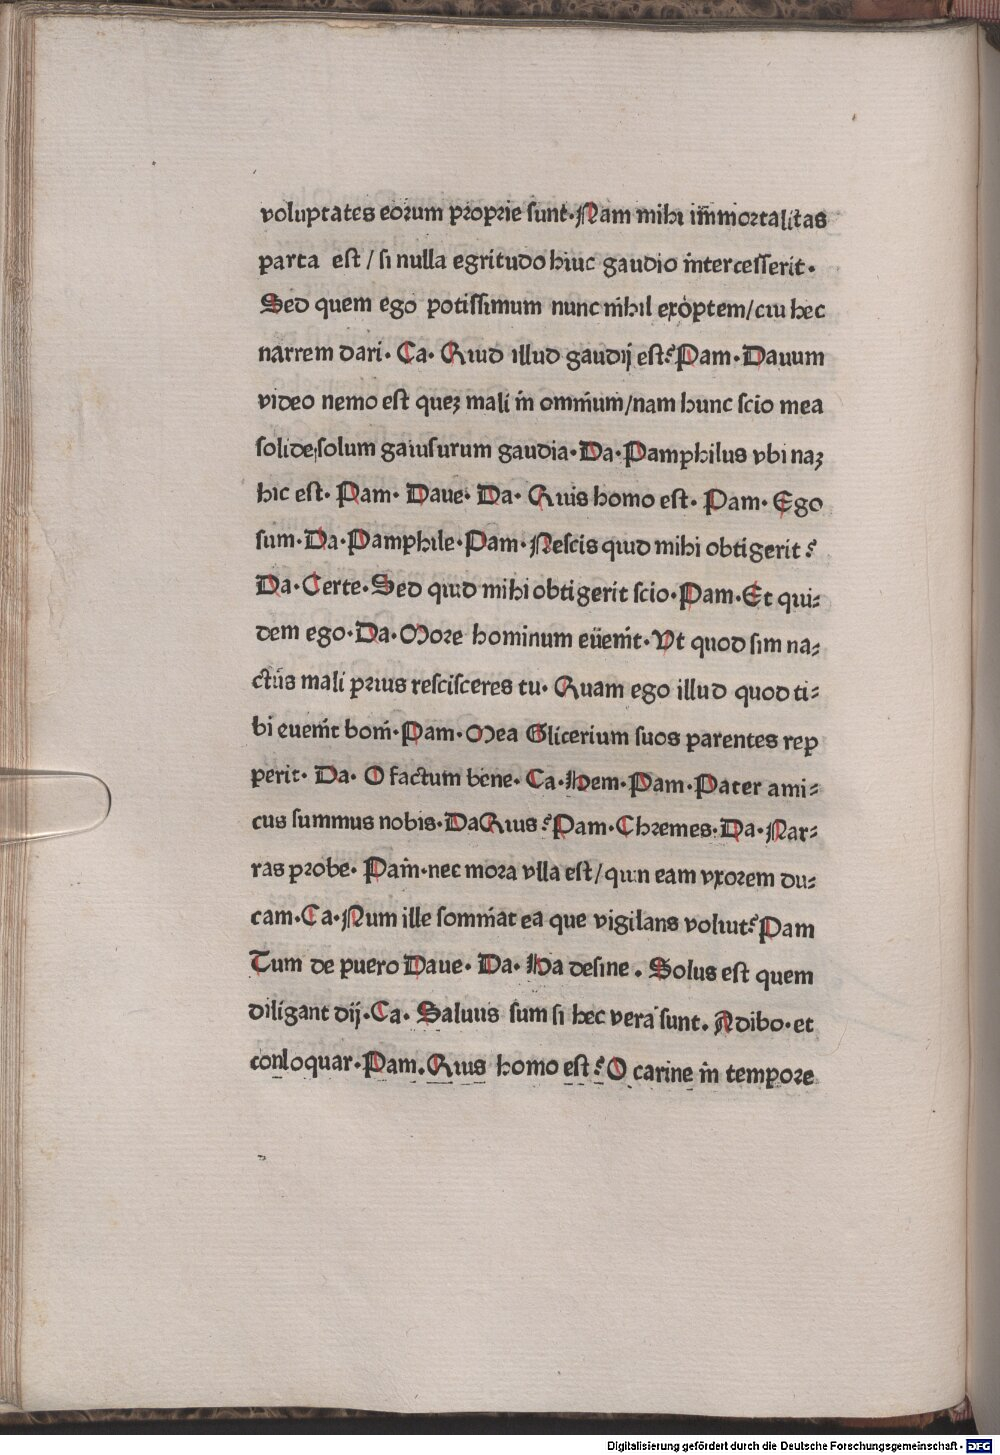 voluptates eorum proprie sunt·Nam mihi im̄mortalitas
parta est / si nulla egritudo hiuc gaudio īntercesserit·
Sed quem ego potissimum nunc mihil exoptem/cui hec
narrem dari· Ca· Quid illud gaudij est? Pam· Dauum
video nemo est quez mali īn omnium/nam hunc scio mea
solide,solum gauisurum gaudia·Da·Pamphilus vbi naz
hic est· Pam· Daue· Da· Quis homo est· Pam· Ego
sum·Da·Pamphile·Pam·Nescis quid mihi obtigerit?
Da·Certe·Sed quid mihi obtigerit scio·Pam·Et qui⸗
dem ego·Da·More hominum euenit·Vt quod sim na⸗
ctus mali prius rescisceres tu· Quam ego illud quod ti⸗
bi euenit boni·Pam·Mea Glicerium suos parentes rep
perit· Da· O factum bene· Ca·Hem·Pam·Pater ami⸗
cus summus nobis·DaQuis?Pam·Chremes·Da·Nar⸗
ras probe· Pam·nec mora vlla est/quin eam vxorem du⸗
cam·Ca·Num ille somniat ea que vigilans voluit?Pam
Tum de puero Daue· Da· Ha desine. Solus est quem
diligant dij·Ca· Saluus sum si hec vera sunt. Adibo·et
conloquar·Pam.Quis homo est? O carine īn tempore
Digitalisierung gefördert durch die Deutsche Forschungsgemeinschaft - DFG